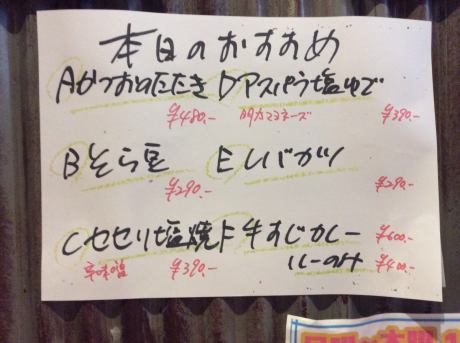 本日のおすすめ
Aかつおのたたき Dアスパラ塩ゆで
¥480.- 明太マヨネーズ ¥390.-
Bそら豆 Eレバカツ
¥290.- ¥290.-
Cセセリ塩焼 F牛すじカレー ¥600.-
辛味噌 ¥390.- ルーのみ ¥400.-